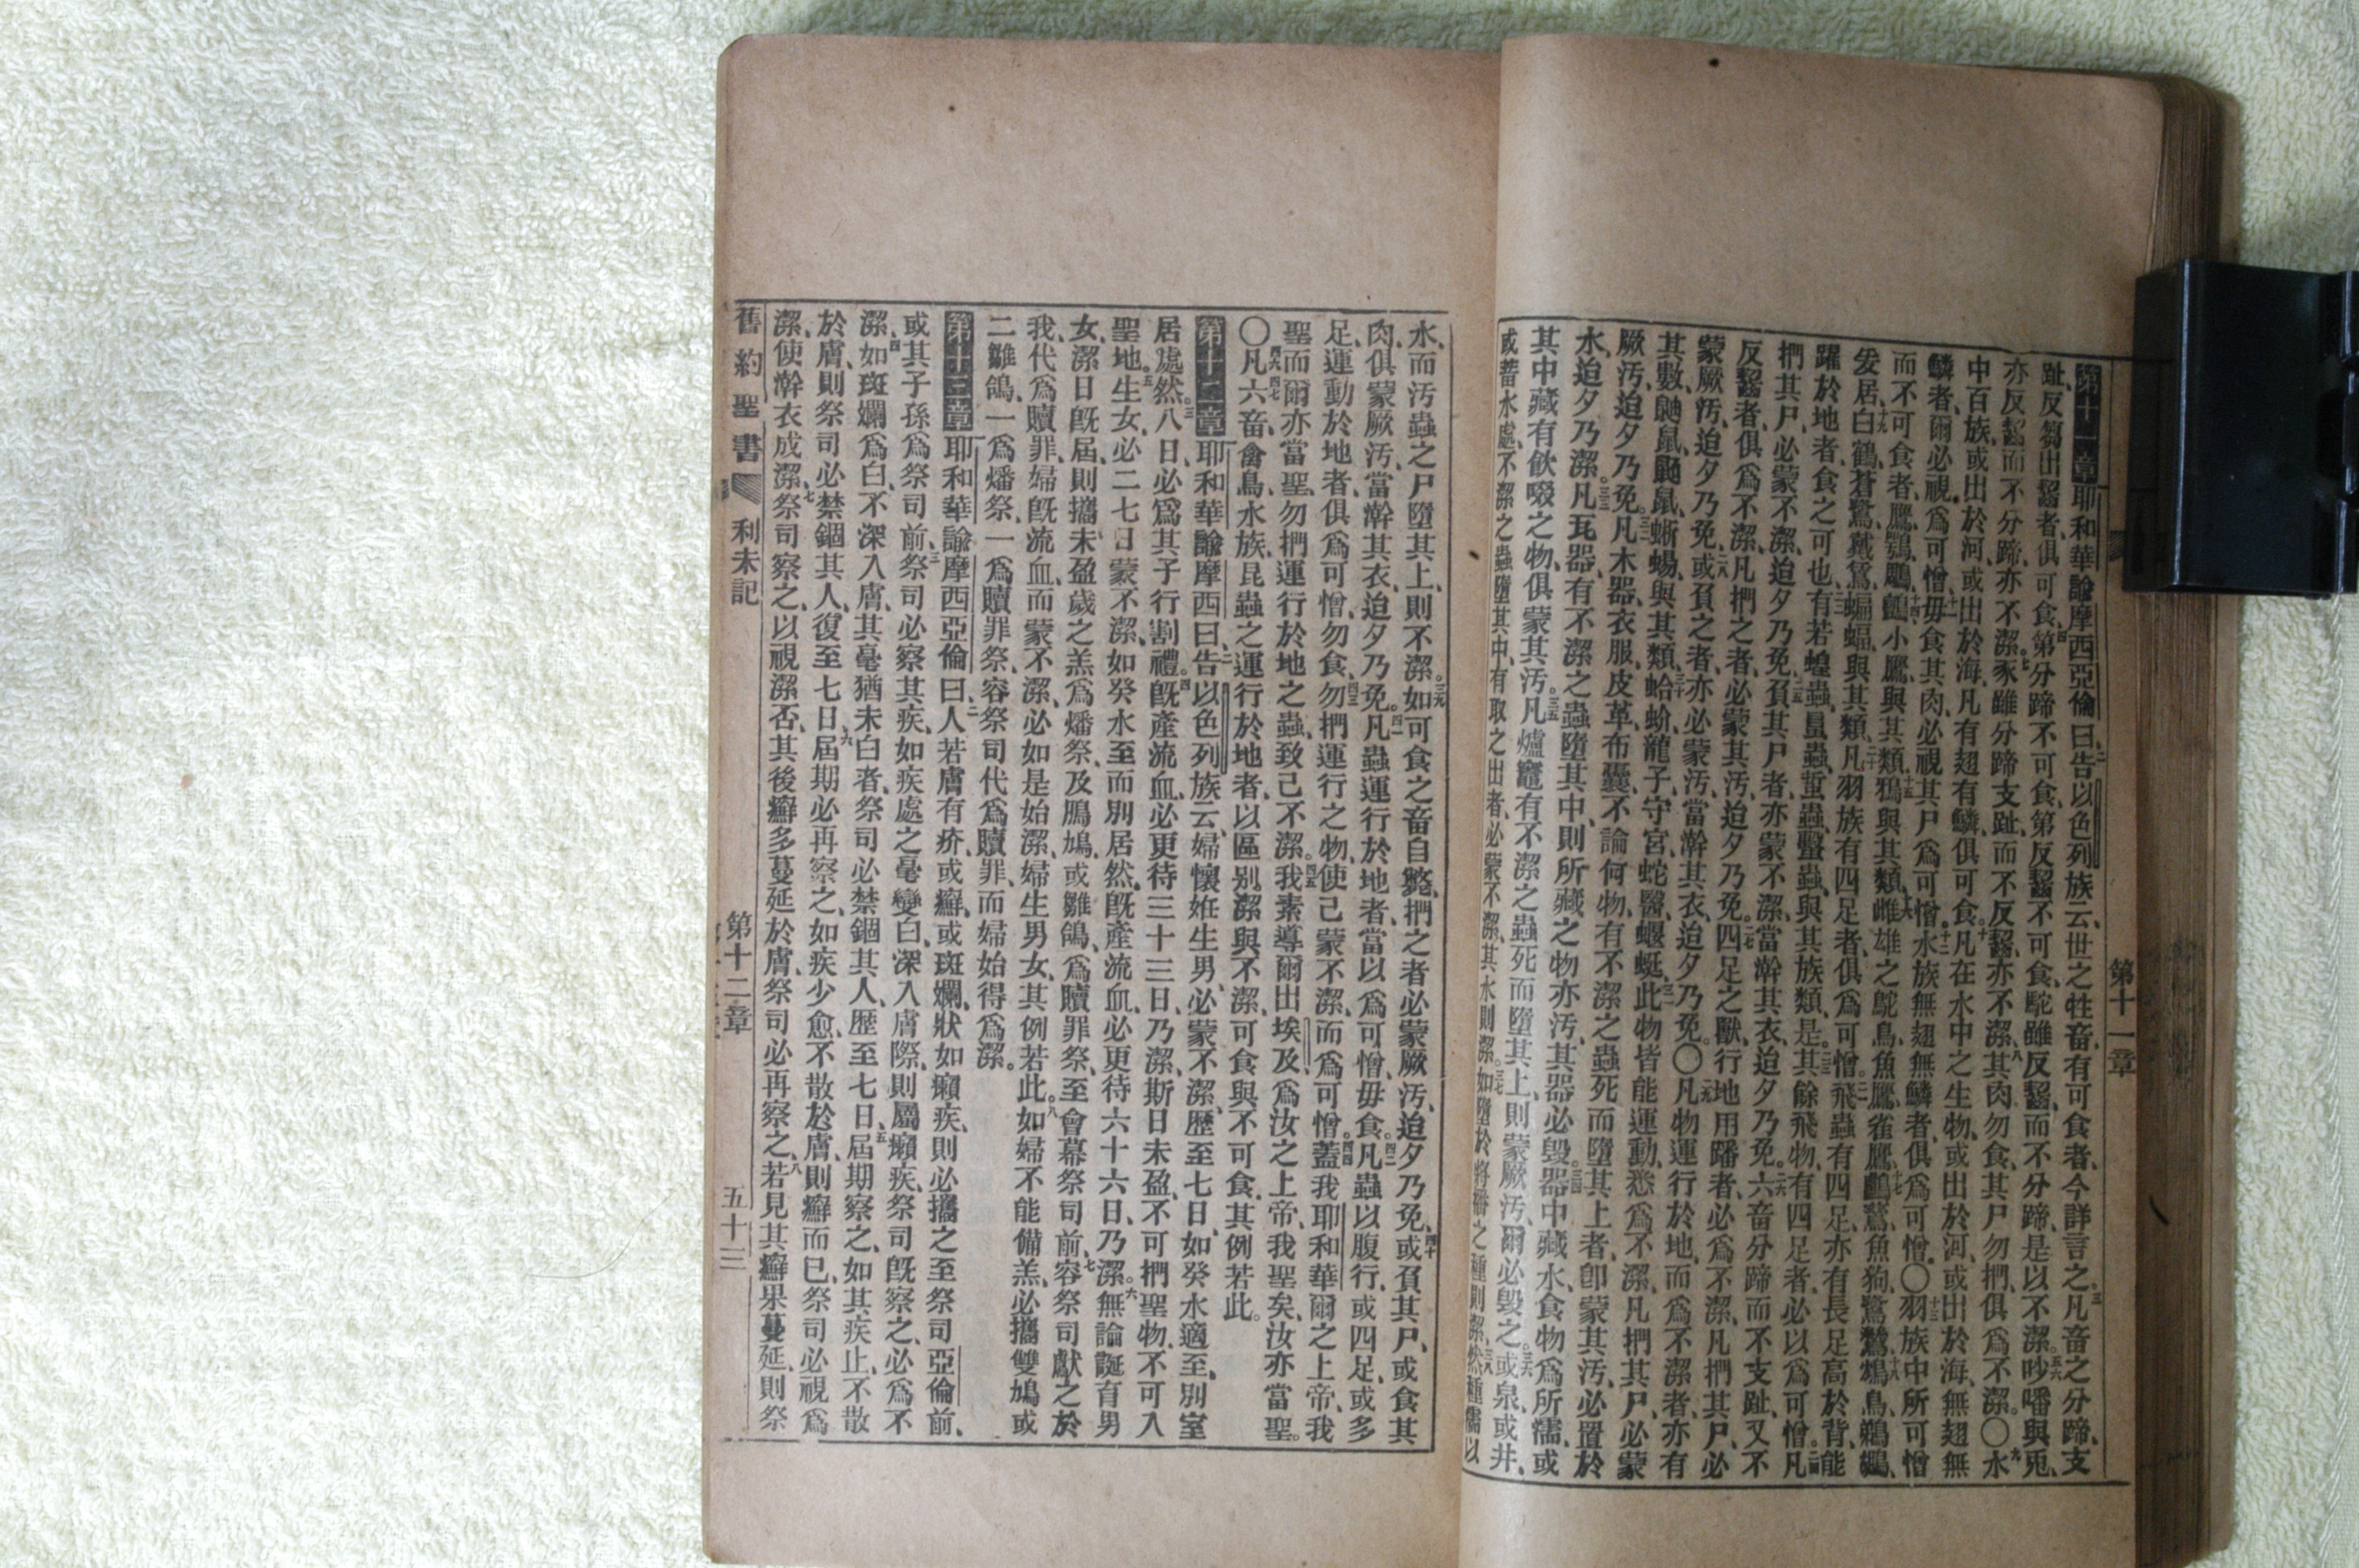 第十一章
第十一章耶和華諭摩西亞倫曰、二告以色列族云、世之牲畜、有可食者、今詳言之、三凡畜之分蹄、支
趾、反芻出齝者、俱可食、四第分蹄不可食、第反齝不可食、駝雖反齝、而不分蹄、是以不潔。五六𠯆噃與兎、
亦反齝而不分蹄、亦不潔。七豕雖分蹄支趾、而不反齝、亦不潔。八其肉勿食、其尸勿捫、俱爲不潔。〇九水
中百族、或出於河、或出於海、凡有翅有鱗、俱可食、十凡在水中之生物、或出於河、或出於海、無翅無
鱗者、爾必視爲可憎、十一毋食其肉、必視其尸爲可憎、十二水族無翅無鱗者、俱爲可憎。〇十三羽族中所可憎
而不可食者、鷹、鶚、鵰、十四鸇、小鷹、與其類、十五鴉與其類、十六雌雄之鴕鳥、魚鷹、雀鷹、十七鸕鶿、魚狗、鷺鷥、十八鴆鳥、鵜鶘、
爰居、十九白鶴、蒼鷺、戴鵀、蝙蝠、與其類、二十凡羽族有四足者、俱爲可憎。二一飛蟲有四足、亦有長足高於背、能
躍於地者、食之可也、二二有若蝗蟲、䖵蟲、蜚蟲、螽蟲、與其族類是。二三其餘飛物、有四足者、必以爲可憎、二四凡
捫其尸、必蒙不潔、迨夕乃免、二五負其尸者、亦蒙不潔、當澣其衣、迨夕乃免。二六六畜分蹄而不支趾、又不
反齝者、俱爲不潔、凡捫之者、必蒙其汚、迨夕乃免、二七四足之獸、行地用蹯者、必爲不潔、凡捫其尸、必
蒙厥汚、迨夕乃免、二八或負之者、亦必蒙汚、當澣其衣、迨夕乃免。〇二九凡物運行於地、而爲不潔者、亦有
其數、鼬鼠、鼫鼠、蜥蜴、與其類、三十蛤蚧、龍子、守宮、蛇醫、蝘蜓、三一此物皆能運動、悉爲不潔、凡捫其尸、必蒙
厥汚、迨夕乃免。三二凡木器、衣服、皮革、布囊、不論何物、有不潔之蟲死而墮其上者、卽蒙其汚、必置於
水、迨夕乃潔。三三凡瓦器、有不潔之蟲墮其中、則所藏之物亦汚、其器必毀。三四器中藏水、食物爲所濡、或
其中藏有飲啜之物、俱蒙其汚。三五凡爐竈有不潔之蟲死而墮其上、則蒙厥汚、爾必毀之。三六或泉、或井、
或蓄水處、不潔之蟲墮其中、有取之出者、必蒙不潔、其水則潔。三七如墮於將播之種則潔、三八然種濡以
水、而汚蟲之尸墮其上、則不潔。三九如可食之畜自斃、捫之者必蒙厥汚、迨夕乃免、四十或負其尸、或食其
肉、俱蒙厥汚、當澣其衣、迨夕乃免。四一凡蟲運行於地者、當以爲可憎、毋食。四二凡蟲以腹行、或四足、或多
足、運動於地者、俱爲可憎、勿食、四三勿捫運行之物、使己蒙不潔、而爲可憎。四四蓋我耶和華爾之上帝、我
聖而爾亦當聖、勿捫運行於地之蟲、致己不潔。四五我素導爾出埃及、爲汝之上帝、我聖矣、汝亦當聖。
〇四六四七凡六畜、禽鳥、水族、昆蟲之運行於地者、以區別潔與不潔、可食與不可食、其例若此。
第十二章耶和華諭摩西曰、二告以色列族云、婦懷姙生男、必蒙不潔、歷至七日、如癸水適至、別室
居處然。三八日、必爲其子行割禮。四旣產流血、必更待三十三日、乃潔、斯日未盈、不可捫聖物、不可入
聖地。五生女、必二七日蒙不潔、如癸水至而別居然、旣產流血、必更待六十六日、乃潔。六無論誕育男
女、潔日旣屆、則攜未盈歲之羔爲燔祭、及鳲鳩、或雛鴿、爲贖罪祭、至會幕祭司前、七容祭司獻之於
我、代爲贖罪、婦旣流血、而蒙不潔、必如是始潔、婦生男女、其例若此。八如婦不能備羔、必攜雙鳩、或
二雛鴿、一爲燔祭、一爲贖罪祭、容祭司代爲贖罪、而婦始得爲潔。
第十三章耶和華諭摩西亞倫曰、二人若膚有疥、或癬、或斑斕、狀如癩疾、則必攜之至祭司亞倫前、
或其子孫爲祭司前、三祭司必察其疾、如疾處之毫變白、深入膚際、則屬癩疾、祭司旣察之、必爲不
潔、四如斑斕爲白、不深入膚、其毫猶未白者、祭司必禁錮其人、歷至七日、五屆期察之、如其疾止、不散
於膚、則祭司必禁錮其人、復至七日、六屆期必再察之、如疾少愈、不散於膚、則癬而已、祭司必視爲
潔、使澣衣成潔、七祭司察之、以視潔否、其後癬多蔓延於膚、祭司必再察之、八若見其癬果蔓延、則祭
舊約聖書 利未記 第十二章 五十三